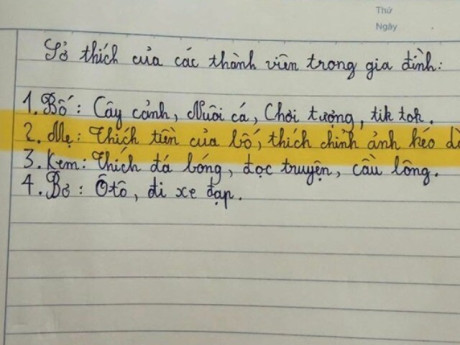 Thứ
Ngày
Sở thích của các thành viên trong gia đình:
1. Bố: Cây cảnh, Nuôi cá, Chơi tướng, tik tok.
2. Mẹ: Thích tiền của bố, thích chỉnh ảnh kéo
3. Kem: Thích đá bóng, đọc truyện, cầu lông.
4. Bơ: Ôtô, đi xe đạp.